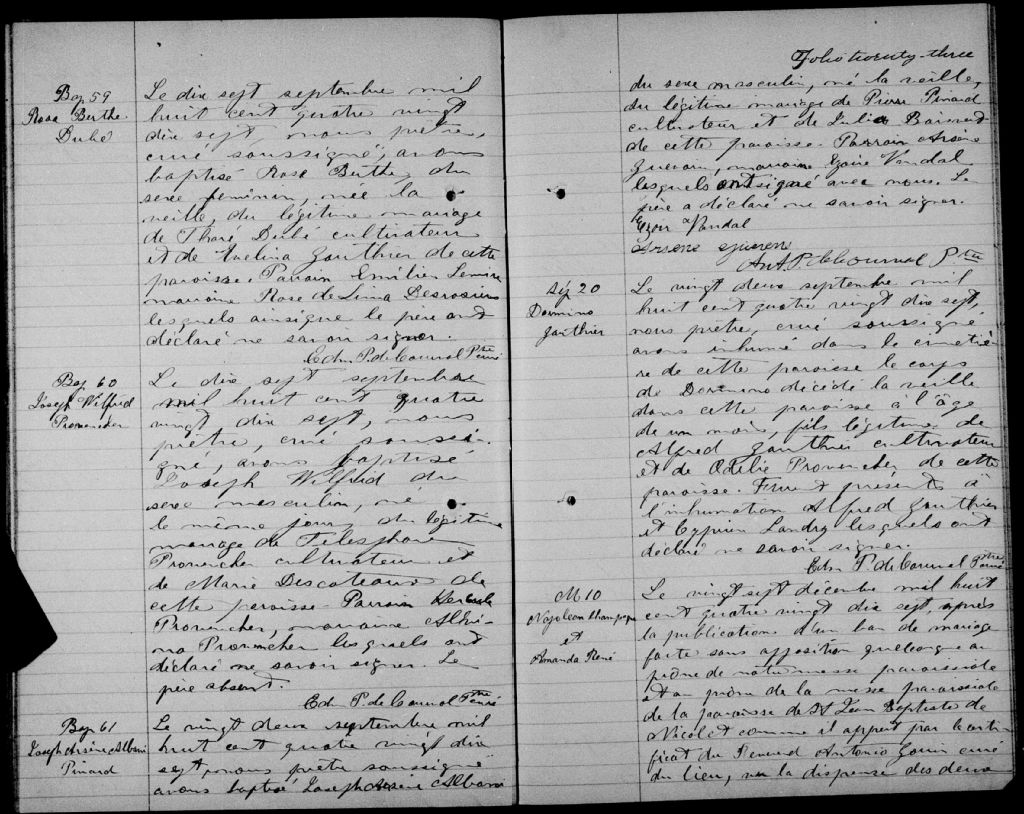 Bap 59
Rose Berthe
Dubé
Le dix sept septembre mil
huit cent quatre vingt
dix sept, nous prêtre,
curé soussigné, avons
baptisé Rose Berthe du
sexe féminin, née la
veille, du légitime mariage
de Tharé Dubé cultivateur
et de Avelina Gauthier de cette
paroisse. Parrain Emilien Lemire
marraine Rose de Lima Desrosiers
lesquels ainsique le père ont
déclaré ne savoir signer.
Edm P. de Courval Ptre curé
Bap 60
Joseph Wilfrid
Provencher
Le dix sept septembre
mil huit cent quatre
vingt dix sept, nous
prêtre, curé soussi-
gné, avons baptisé
Joseph Wilfrid du
sexe masculin, né
le même jour, du légitime
mariage de Télesphore
Provencher cultivateur et
de Marie Descoteaux de
cette paroisse. Parrain
Provencher, marraine Albi-
na Provencher lesquels ont
déclaré ne savoir signer. Le
père absent.
Edm P. de Courval Ptre curé
Bap 61
Joseph Arsène Albani
Pinard
Le vingt deux septembre mil
huit cent quatre vingt dix
sept, nous prêtre soussigné
avons baptisé Joseph Arsène Albani
Folio twenty-three
du sexe masculin, né la veille,
du légitime mariage de Pierre Pinard
cultivateur et de Julie
de cette paroisse. Parrain Arsène
marraine Vandal
lesquels ont signé avec nous. Le
père a déclaré ne savoir signer.
Vandal
Arsène
Ant. P. de Courval Ptre
Sép 20
Dormino
Gauthier
Le vingt deux septembre mil
huit cent quatre vingt dix sept,
nous prêtre, curé soussigné,
avons inhumé dans le cimetiè-
re de cette paroisse le corps
de Dormino décédé la veille
dans cette paroisse à l'âge
de un mois, fils légitime de
Alfred Gauthier cultivateur
et de Odélie Provencher de cette
paroisse. Furent présents à
l'inhumation Alfred Gauthier
et Cyprien Landry lesquels ont
déclaré ne savoir signer.
Edm P. de Courval Ptre curé
M 10
Napoléon Champagne
et
Amanda René
Le vingt sept décembre mil huit
cent quatre vingt dix sept, après
la publication d'un ban de mariage
faite sans opposition quelconque au
prône de notre messe paroissiale
et au prône de la messe paroissiale
de la paroisse de St Jean Baptiste de
Nicolet comme il appert par le certi-
ficat du Révérend Antonio curé
du lieu, vu la dispense des deux